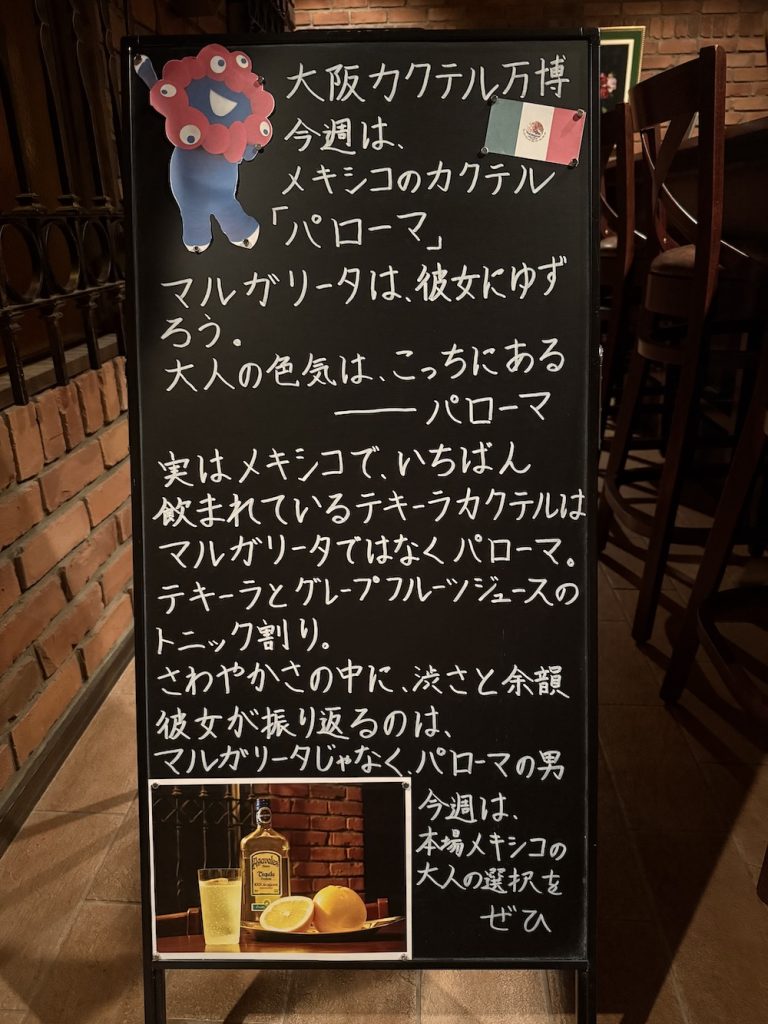 大阪カクテル万博
今週は、
メキシコのカクテル
「パローマ」
マルガリータは、彼女にゆず
ろう。
大人の色気は、こっちにある
── パローマ
実はメキシコで、いちばん
飲まれているテキーラカクテルは
マルガリータではなくパローマ。
テキーラとグレープフルーツジュースの
トニック割り。
さわやかさの中に、渋さと余韻
彼女が振り返るのは、
マルガリータじゃなく、パローマの男
今週は、
本場メキシコの
大人の選択を
ぜひ
Tequila